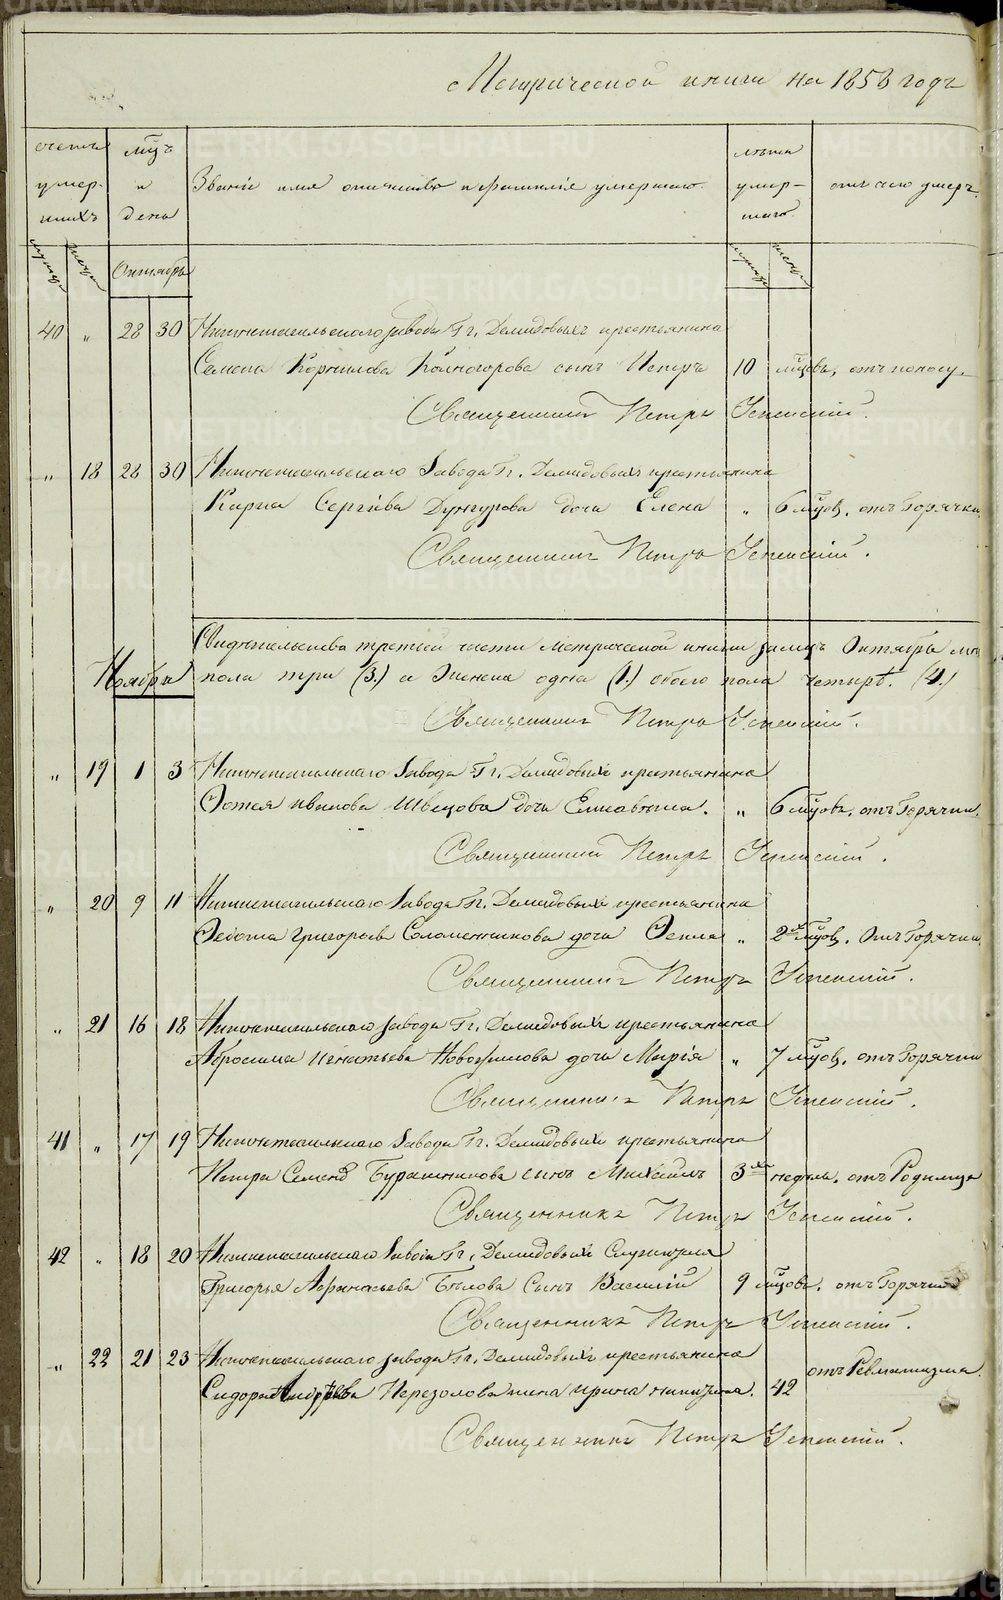 Метрической книги на 1858 годъ
счетъ умер- шихъ
мужс.
женс.
мцъ и день
Званіе имя отчество и фамилія умершаго.
лѣта умер- шаго.
мужс.
женс.
отъ чего умеръ.
Октябрь
40 " 28 30 Нижнетагильскаго завода Гг. Демидовыхъ крестьянина
Семена Корнилова Колногорова сынъ Петръ 10 мцовъ, отъ поносу.
Священникъ Петръ Успенскій.
" 18 28 30 Нижнетагильскаго Завода Гг. Демидовыхъ крестьянина
Карпа Сергѣева Дунгурова дочь Елена " 6 мцов. отъ Горячки.
Священникъ Петръ Успенскій.
Свидѣтельства третьей части Метрической книги за мцъ Октябрь муж
пола три (3.) а Женска одна (1.) обоего пола четырѣ. (4.)
Священникъ Петръ Успенскій.
Ноябрь
" 19 1 3 Нижнетагильскаго Завода Гг. Демидовыхъ крестьянина
Фотея Иванова Швецова дочь Елисавета. " 6 мцовъ. отъ Горячки.
Священникъ Петръ Успенскій.
" 20 9 11 Нижнетагильскаго Завода Гг. Демидовыхъ крестьянина
Федота Григорьева Соломенникова дочь Фекла " 2хъ мцов. Отъ Горячки
Священникъ Петръ Успенскій.
" 21 16 18 Нижнетагильскаго завода Гг. Демидовыхъ крестьянина
Абросима Игнатьева дочь Марія " 7 мцов. отъ Горячки
Священникъ Петръ Успенскій.
41 " 17 19 Нижнетагильскаго Завода Гг. Демидовыхъ крестьянина
Петра Семено Бурашникова сынъ Михаилъ 3хъ недѣль. отъ Родимца
Священникъ Петръ Успенскій.
42 " 18 20 Нижнетагильскаго Завода Гг. Демидовыхъ Служителя
Григорья Афанасьева Бѣлова Сынъ Василій 9 мцовъ. отъ Горячки
Священникъ Петръ Успенскій.
" 22 21 23 Нижнетагильскаго завода Гг. Демидовыхъ крестьянина
Сидора Андрѣева Перезолова жена Ирина Никитина. 42 отъ Ревматизма.
Священникъ Петръ Успенскій.
METRIKI.GASO-URAL.RU